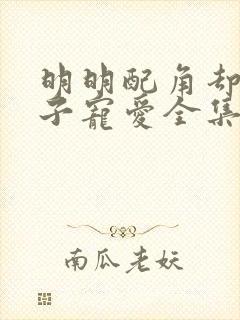 明明配角却
子寵愛全集
南瓜老妖